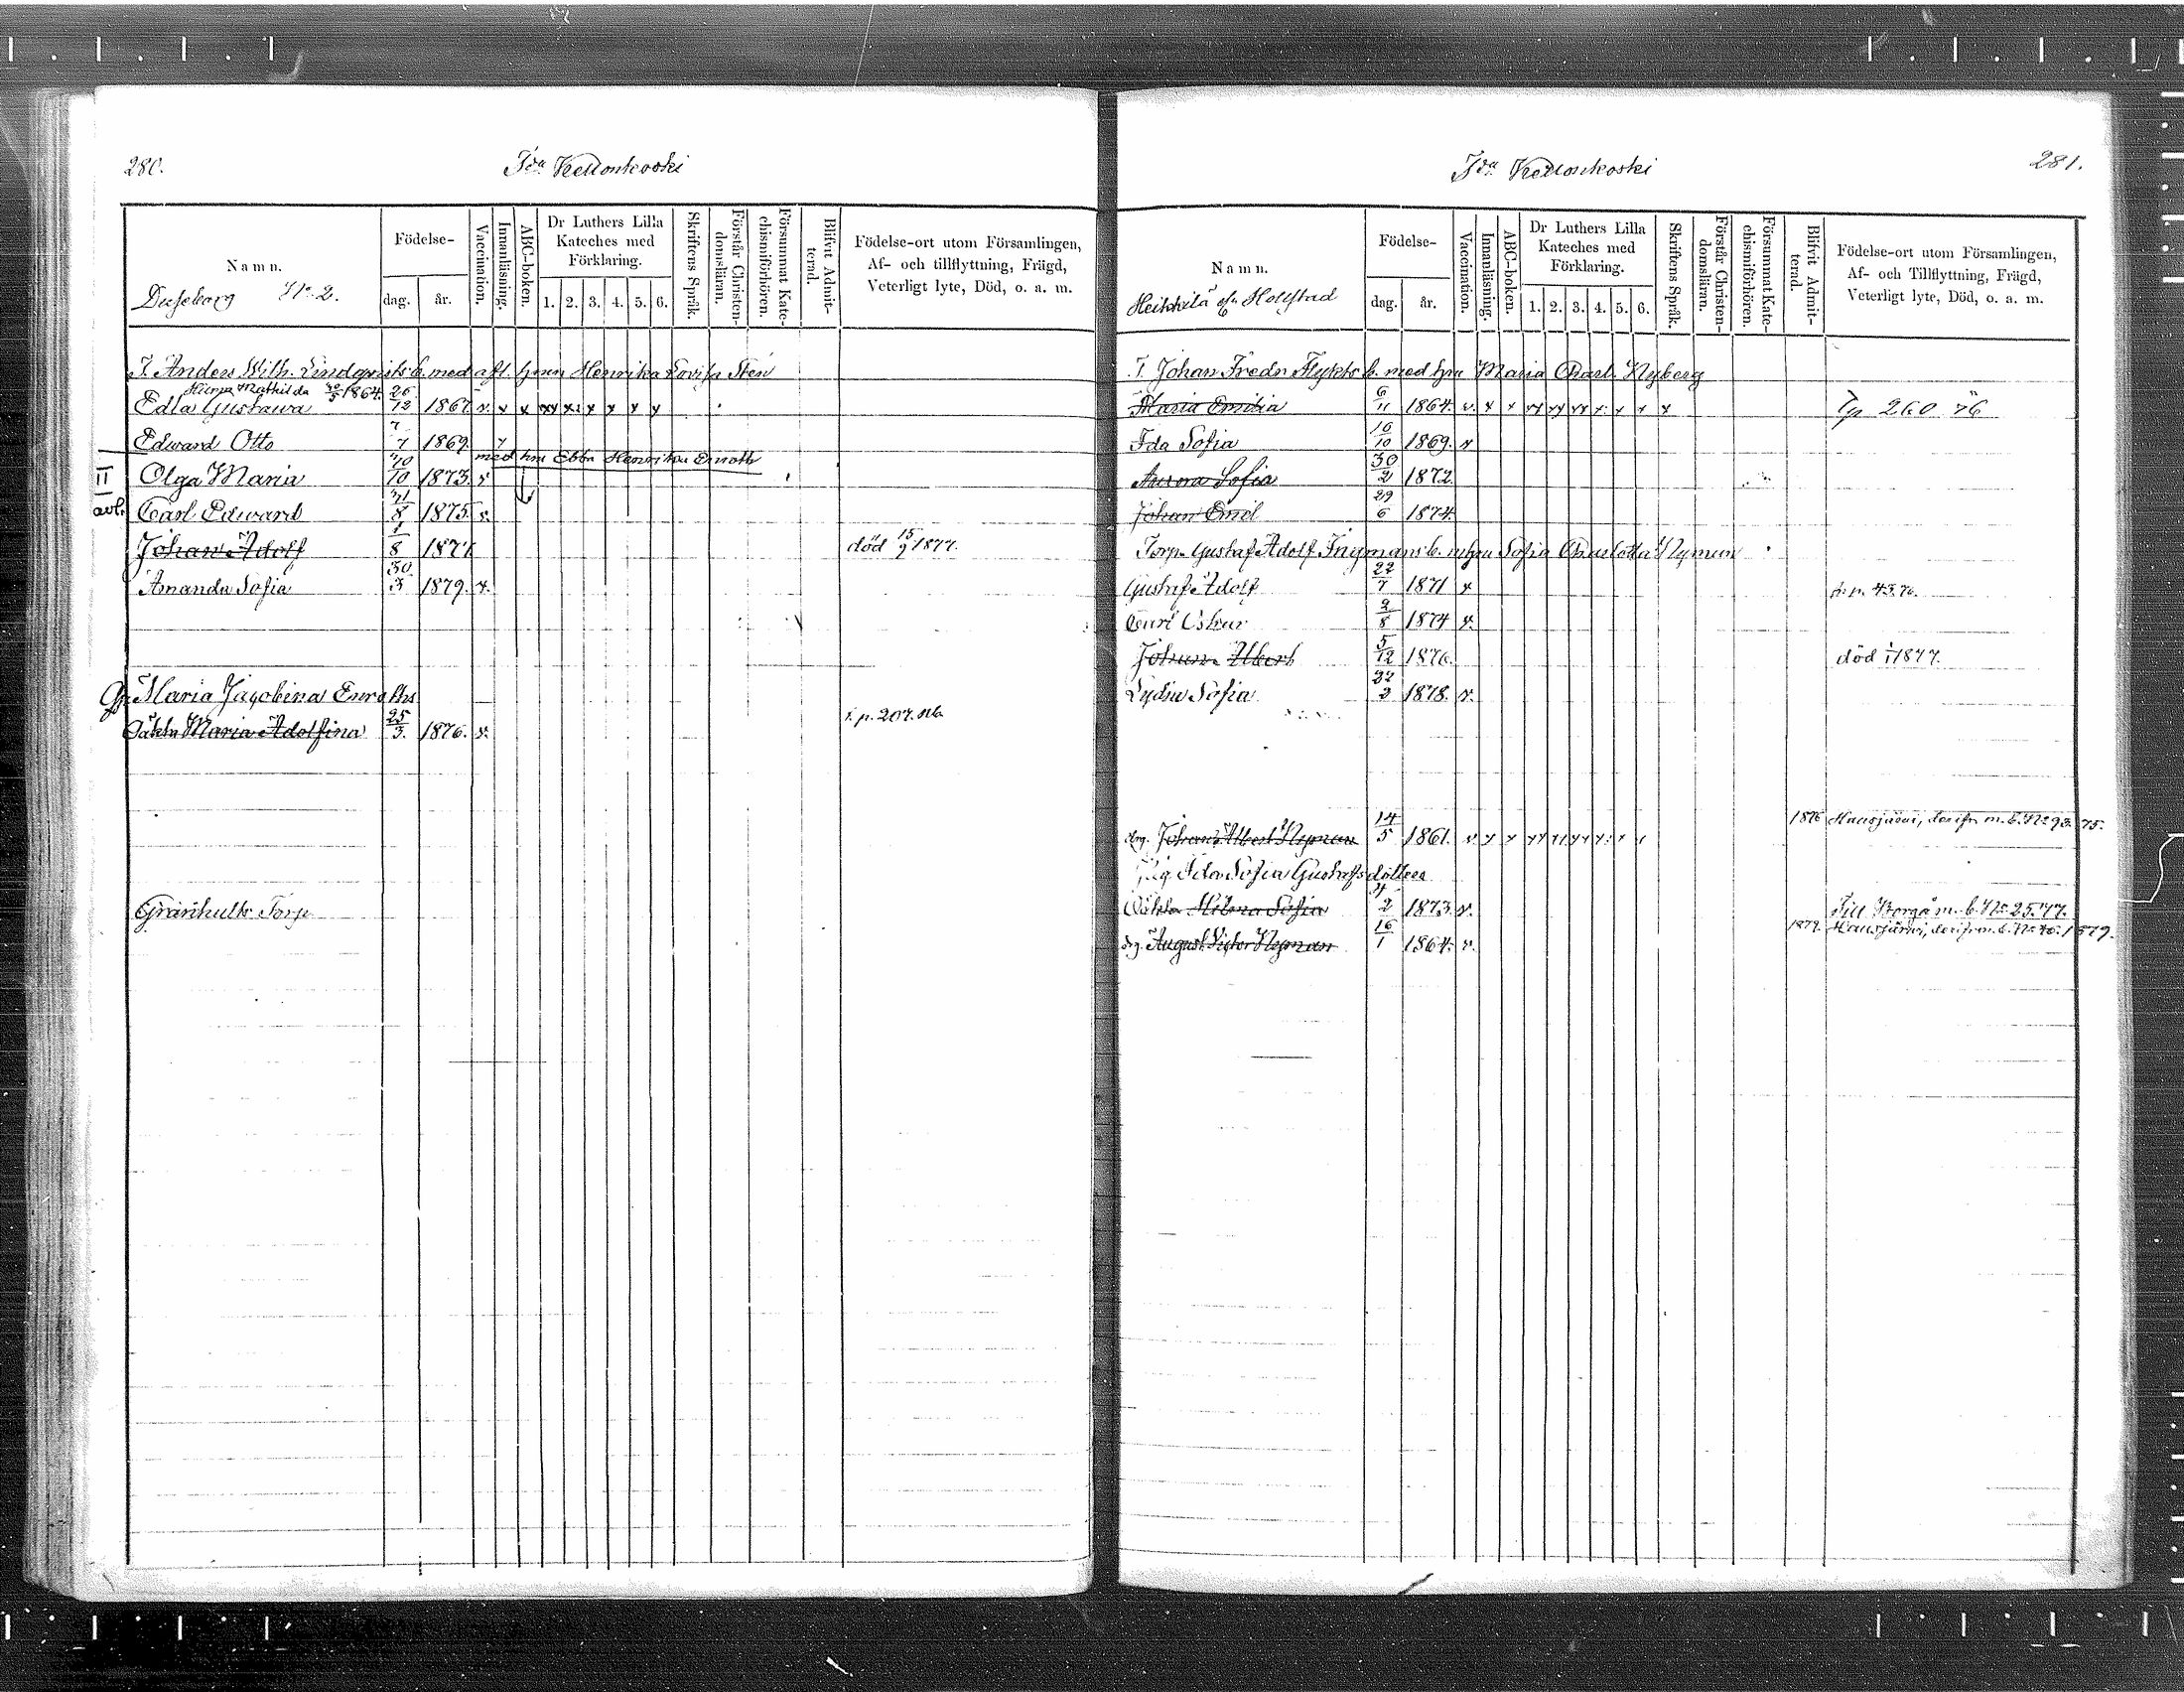 280.
Ida Kellonkoski
Namn.
Duseborg No 2.
Födelse-
dag.
år.
Vaccination.
Innanläsning.
ABC-boken.
Dr Luthers Lilla Kateches med Förklaring.
1. 2. 3. 4. 5. 6.
Skriftens Språk.
Förstår Christen-domsläran.
Försummat Kate-chismiförhören.
Blifvit Admit-terad.
Födelse-ort utom Församlingen,
Af- och tillflyttning, Frägd,
Veterligt lyte, Död, o. a. m.
T. Anders Wilh. Lindqvists b. med afl. hnn Henrika Lovisa Sten
Hilma Mathilda 30/5 1864.
Edla Gustawa 26/12 1867. v. x x xx x x x x x
Edward Otto 7/7 1869. v
med hnn Ebba Henrika Enroth
II
avl.
Olga Maria 10/10 1873. v
Carl Edward 21/8 1875. v.
Johan Adolf 1/8 1877 död 15/9 1877.
Amanda Sofia 30/3 1879. v.
Maria Jacobina Enroths
Oäkta Maria Adolfina 25/3. 1876. v. T. p. 207. nb
Gränhults Torp
281.
Ida Kellonkoski
Namn.
Heikkilä Hollstad
Födelse-
dag.
år.
Vaccination.
Innanläsning.
ABC-boken.
Dr Luthers Lilla Kateches med Förklaring.
1. 2. 3. 4. 5. 6.
Skriftens Språk.
Förstår Christen-domsläran.
Försummat Kate-chismiförhören.
Blifvit Admit-terad.
Födelse-ort utom Församlingen,
Af- och Tillflyttning, Frägd,
Veterligt lyte, Död, o. a. m.
T. Johan Fredr Flykts b. med hnn Maria Charl. Nyberg
Maria Emilia 6/11 1864. v. x x xx xx xx x x x x Tp 260 76
Ida Sofia 16/10 1869. v
Aurora Sofia 30/2 1872.
Johan Emil 29/6 1874.
Torp. Gustaf Adolf Ingmans b. m hnn Sofia Charlotta Nyman
Gustaf Adolf 22/7 1871 v fr. p. 43. 76.
Carl Oskar 2/8 1874 v.
Johan Albert 5/12 1876. död 1/1 1877.
Lydia Sofia 22/2 1878. v.
drg. Johan Albert Nyman 14/5 1861. v x x xx xx xx x x x 1876 Hausjärvi, derifr. m. b. No 93. 75.
Pig. Ida Sofia Gustafsdotters
Oäkta Hilma Sofia 4/2 1873. v. Till Borgå m. b. No 25. 77.
drg. August Victor Nyman 16/1 1864. v. 1879. Hausjärvi, derifr. m. b. No 40. 1879.